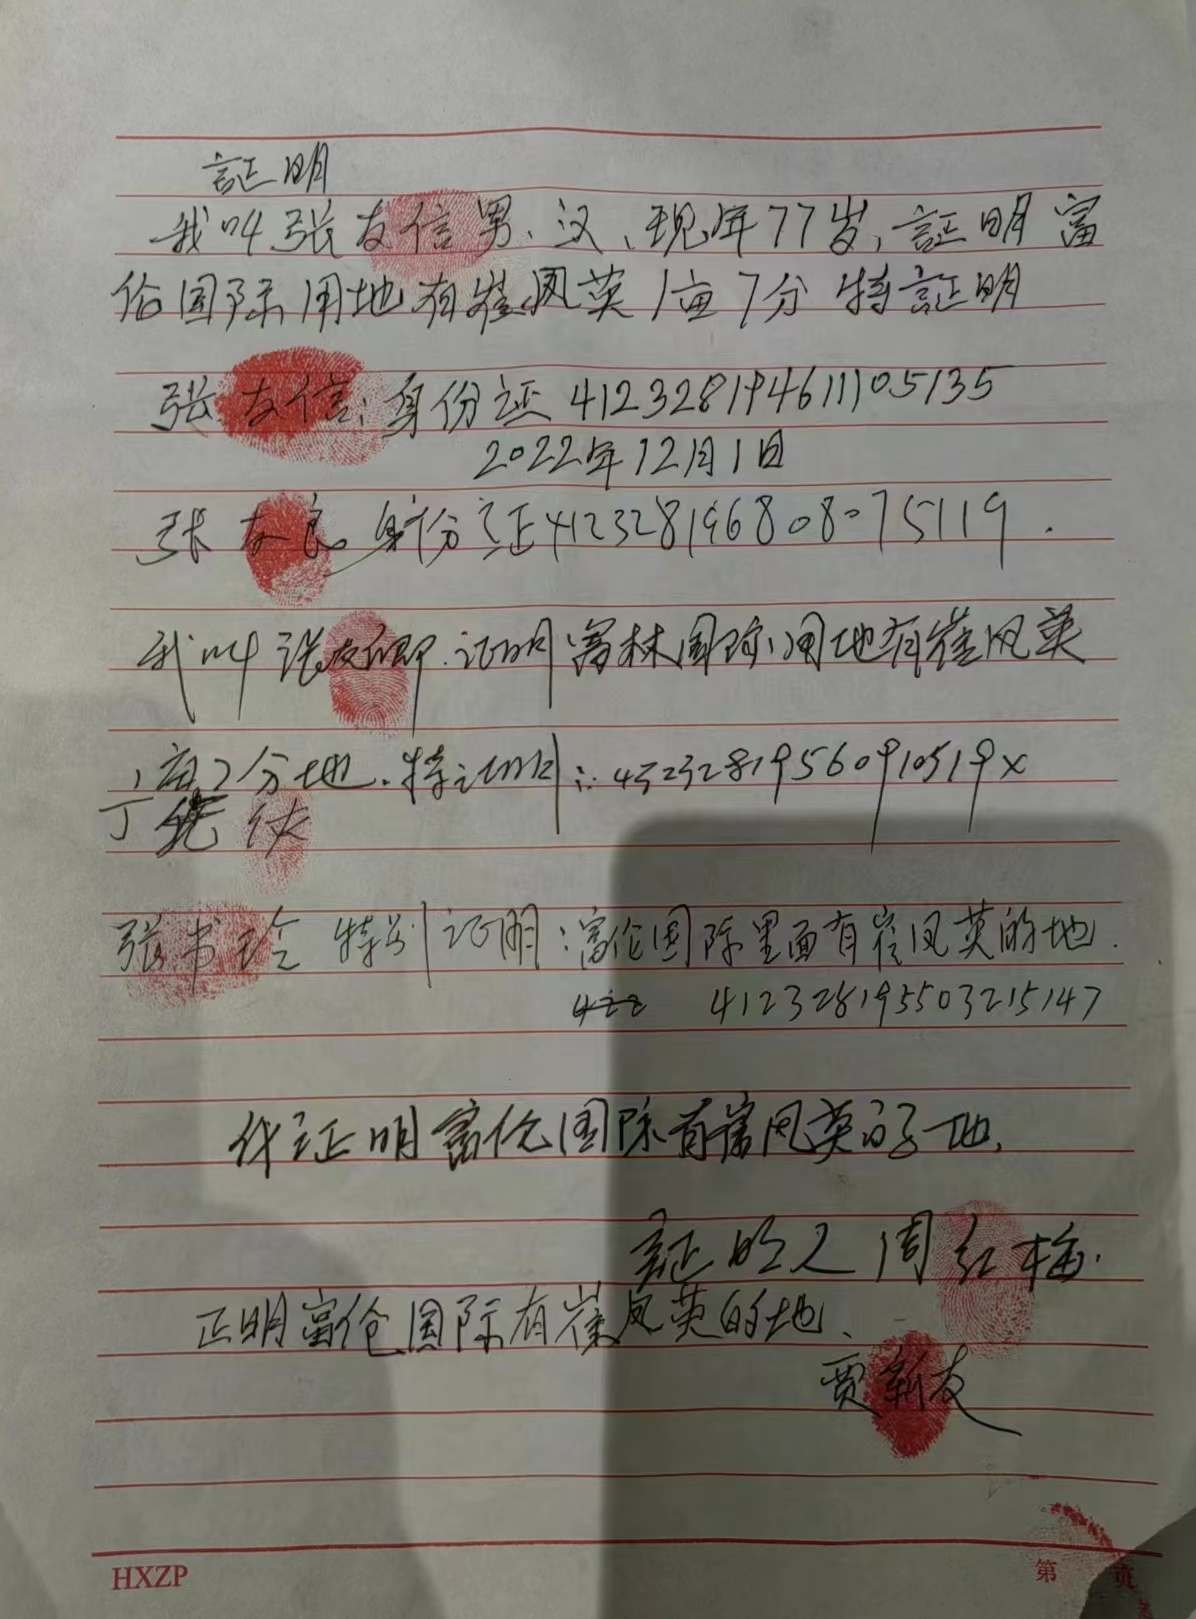 証明
我叫张友信男、汉、现年77岁,証明富
伦国际用地有崔凤英1亩7分 特証明
张友信:身份证 412328194611105135
2022年12月1日
张友良 身份证412328196808075119.
我叫张友 证明富林国际用地有崔凤英
1亩7分地.特证明
丁
张书玲 特别证明:富伦国际里面有崔凤英的地.
412328195503215147
证明富伦国际有崔凤英的地.
証明人 周红梅.
正明富伦国际有崔凤英的地、
贾新友
HXZP
第 页